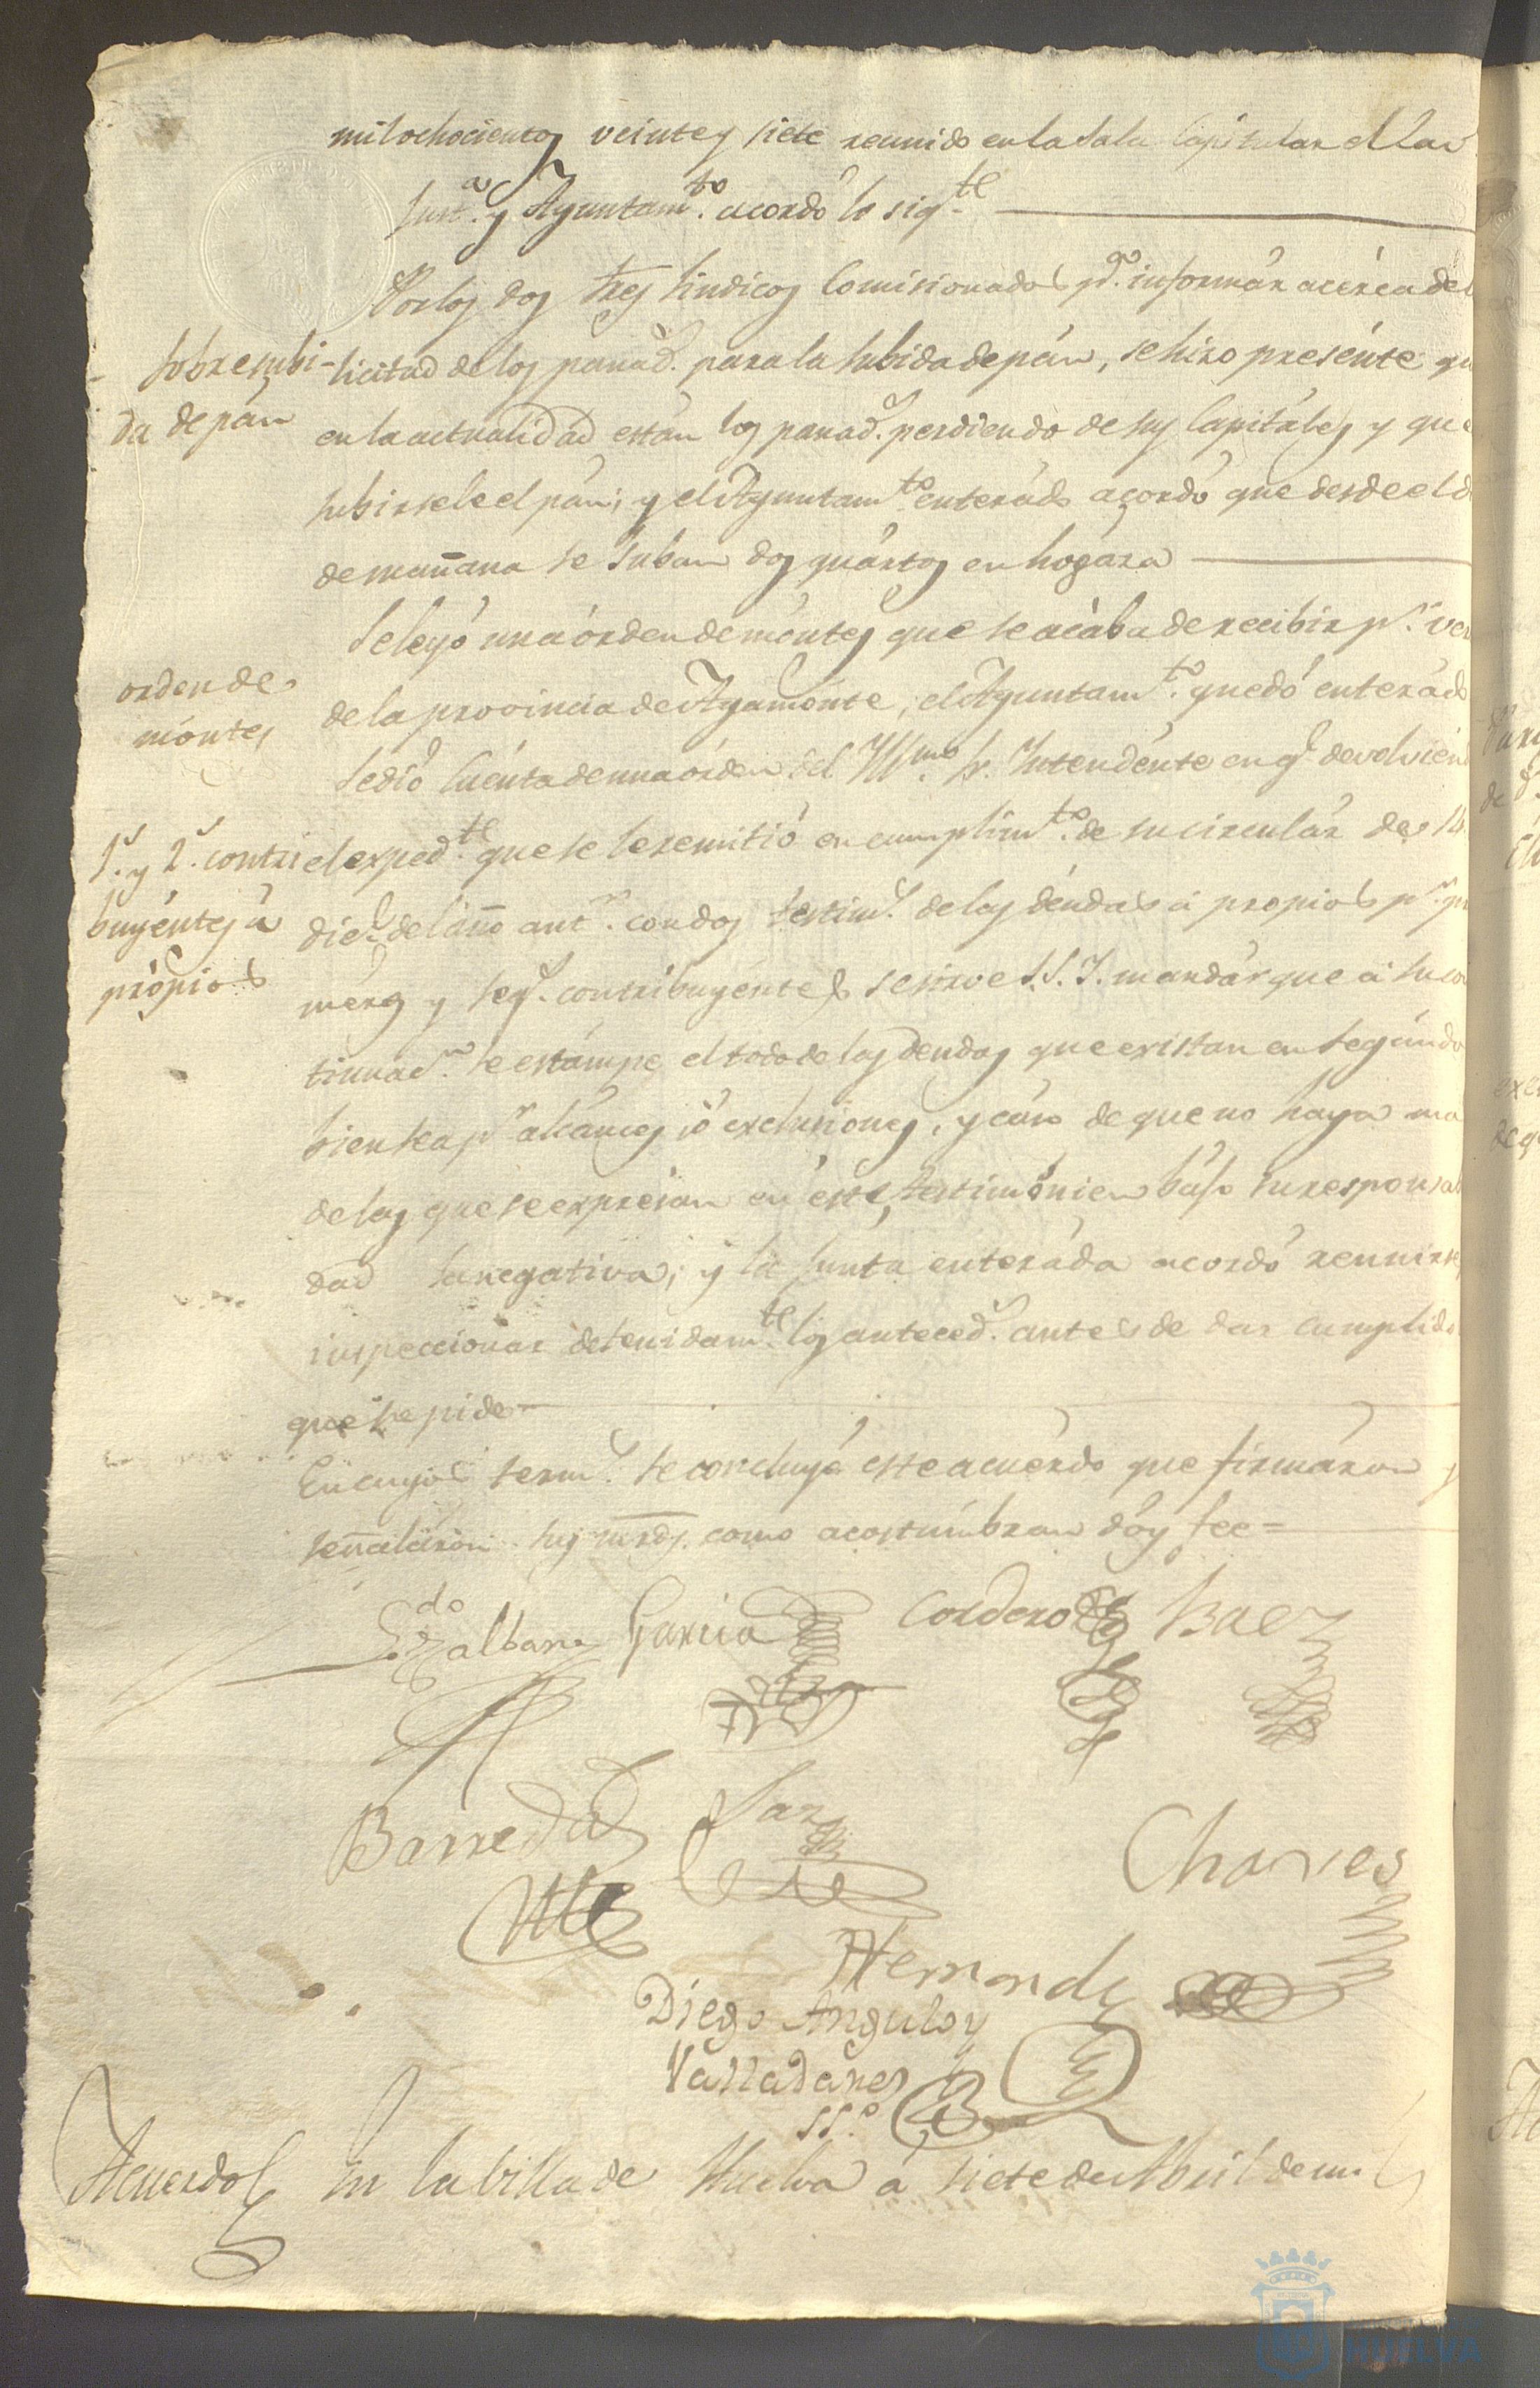 mil ochocientos veinte y siete reunido en la Sala Capitular el Con
Just.ª y Ayuntam.to acordó lo sig.te
Por los dos Sres Sindicos Comisionados p.ª informár acérca de
Sobre subi-
da de pán
licitud de los panad.s para la subida de pán, se hizo presénte qu
en la actualidád están los panad.s perdiendo de sus Capitáles y que
subirsele el pán; y el Ayuntam.to enterádo acordó que desde el d
de mañana se suban dos quártos en hogáza
Se leyó una órden de móntes que se acába de recibir p.r ver
orden de
móntes
de la provincia de Ayamónte; el Ayuntam.to quedó enterádo
Se dió cuénta de una órden del Yllmo. Sr. Yntendénte en g.l devolviend
1.s y 2.s contri
buyéntes á
própios
el exped.te que se le remitió en cumplim.to de su circulár de 14
dic.e del año ant.r con dos testim.s de las déudas á propios p.r pri
méros y seg.s contribuyéntes se sirve S.S.Y. mandár que á su con
tinuac.n se estámpe el todo de las deudas que existan en segúndo
bien sea p.r alcánces ó exclusiones, y cáso de que no haya ma
de las que se expresan en éste, testimónien bájo su responsab
dad la negativa; y la Junta enteráda acordó reunirse,
inspeccionar detenidam.te los anteced.s antes de dar cumplido
que se pide
En cuyos term.s se concluyó este acuérdo que firmáron y
señaláron sus mrds. como acostúmbran dóy fee=
Ldo. Albar Garcia Cordero Baez
Barreda Saz
Charves
Hernandz
Diego Angulo y
Valladares
SS.º
Acuerdo En la Villa de Huelva á siete de Abril de mil
HUELVA